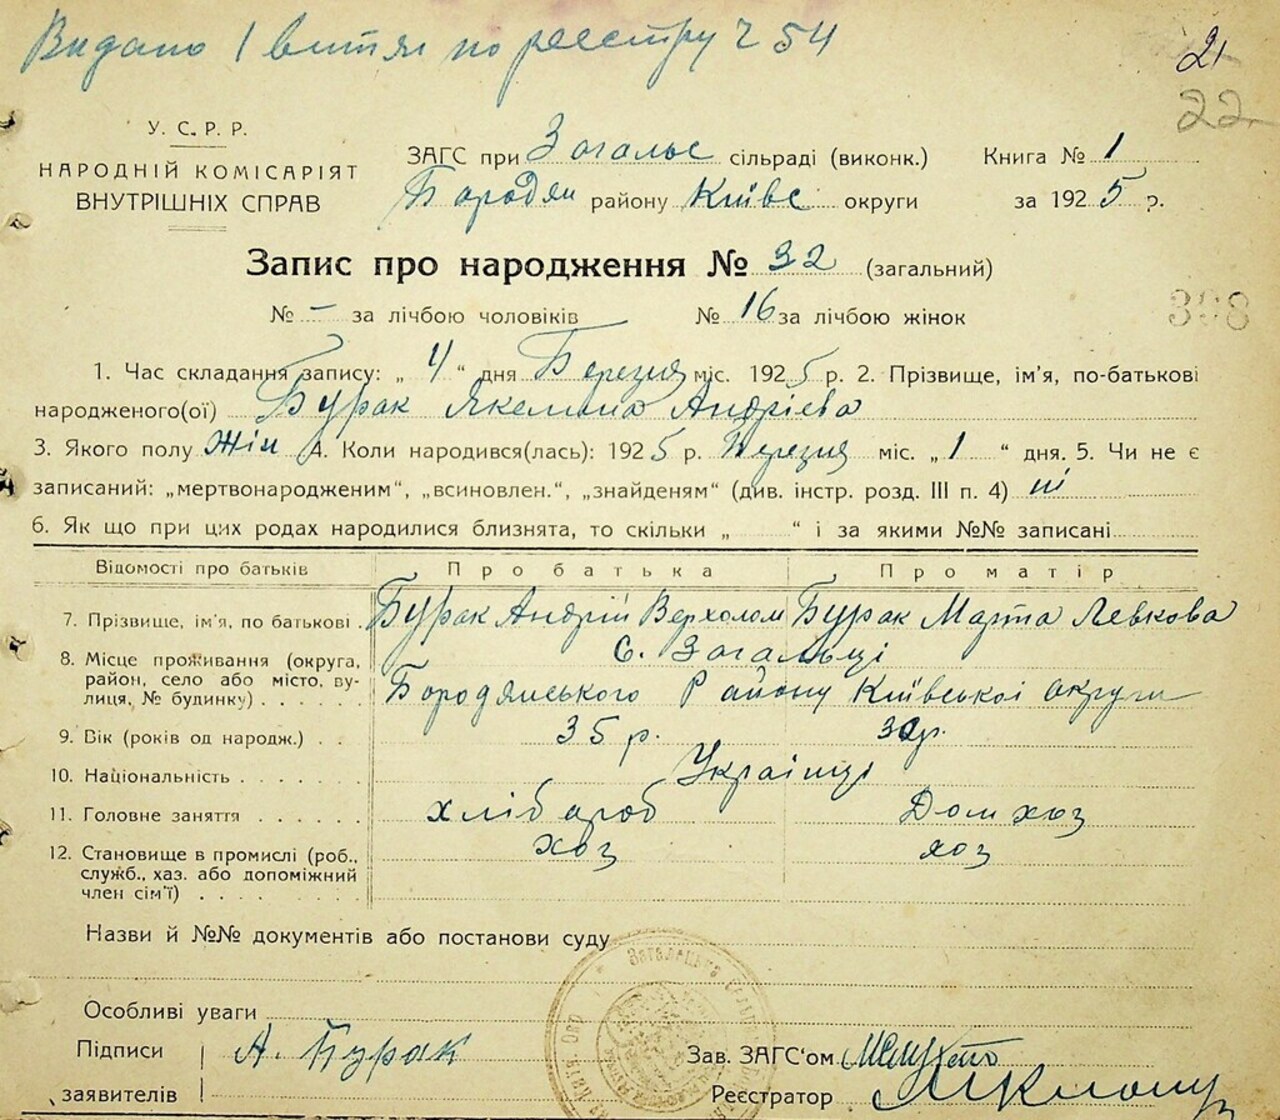 Видано 1 витяг по реєстру ч 54
21
22
У. С. Р. Р.
НАРОДНІЙ КОМІСАРІЯТ
ВНУТРІШНІХ СПРАВ
ЗАГС при Загальс сільраді (виконк.) Книга № 1
Бородян району Київс округи за 1925 р.
Запис про народження № 32 (загальний)
№ – за лічбою чоловіків № 16 за лічбою жінок
398
1. Час складання запису: „ 4 “ дня Березня міс. 1925 р. 2. Прізвище, ім'я, по-батькові
народженого(ої) Бурак Якелина Андрієва
3. Якого полу жін 4. Коли народився(лась): 1925 р. Березня міс. „ 1 “ дня. 5. Чи не є
записаний: „мертвонародженим“, „всиновлен.“, „знайденям“ (див. інстр. розд. III п. 4) ні
6. Як що при цих родах народилися близнята, то скільки „ “ і за якими №№ записані
Відомості про батьків Про батька Про матір
7. Прізвище, ім'я, по батькові . Бурак Андрій Верхолом Бурак Марта Левкова
8. Місце проживання (округа, С. Загальці
район, село або місто, ву- Бородянського Району Київської округи
лиця, № будинку) . . . . . .
9. Вік (років од народж.) . . 35 р. 30р.
10. Національність . . . . . . . Українці
11. Головне заняття . . . . . . хлібороб Дом хоз
12. Становище в промислі (роб., хоз хоз
служб., хаз. або допоміжний
член сім'ї) . . . . . . . .
Назви й №№ документів або постанови суду
Особливі уваги
Підписи А. Бурак Зав. ЗАГС'ом
заявителів Реєстратор